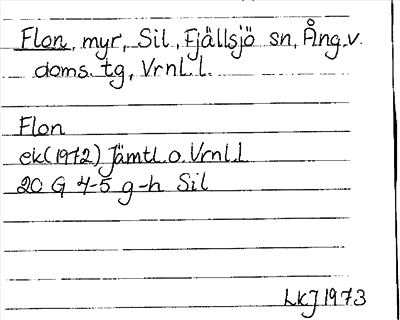 Flon, myr, Sil, Fjällsjö sn, Ång.v.
doms. tg, Vrnl. l.
Flon
ek(1972) Jämtl.o.Vrnl.l
20 G 4-5 g-h Sil
LKJ 1973